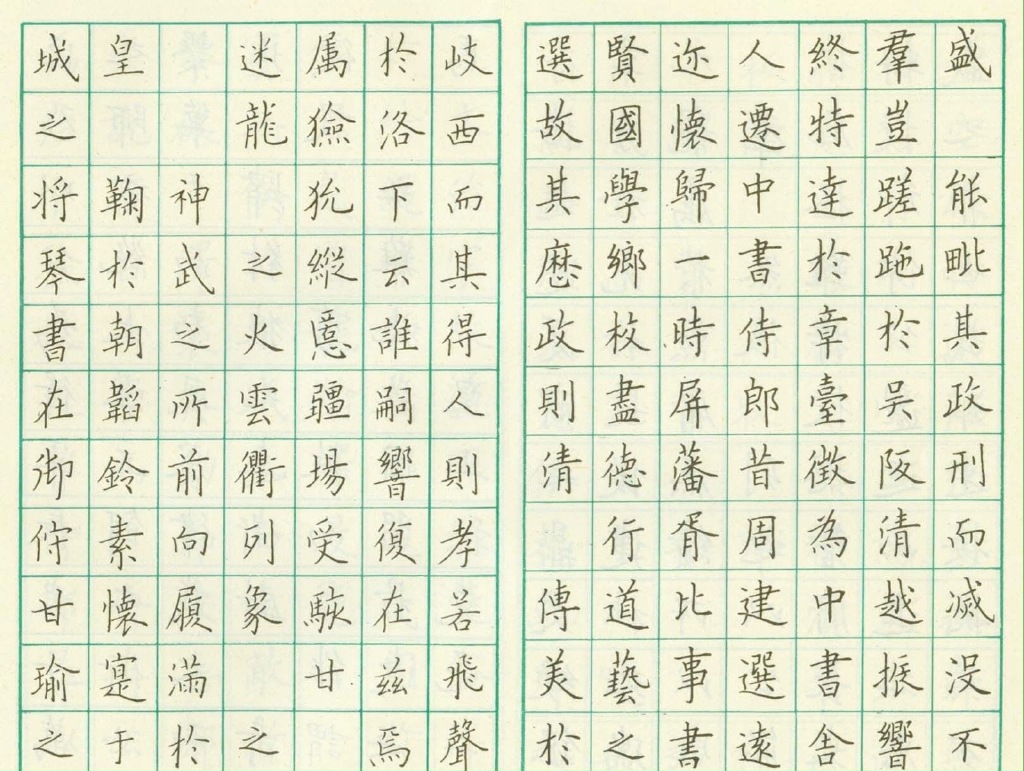 盛能毗其政刑而滅没不
羣豈蹉跎於吴阪清越振響
終特達於章臺徴為中書舍
人遷中書侍郎昔周建選遠
迩懷歸一時屏藩胥比事書
賢國學鄉校盡德行道藝之
選故其歷政則清傳美於
岐西而其得人則孝若飛聲
於洛下云誰嗣響復在兹焉
属獫狁縱慝疆場受駭甘
迷龍之火雲衢列象之
神武之所前向履滿於
皇鞠於朝韜鈴素懷寔于
城之将琴書在御佇甘瑜之